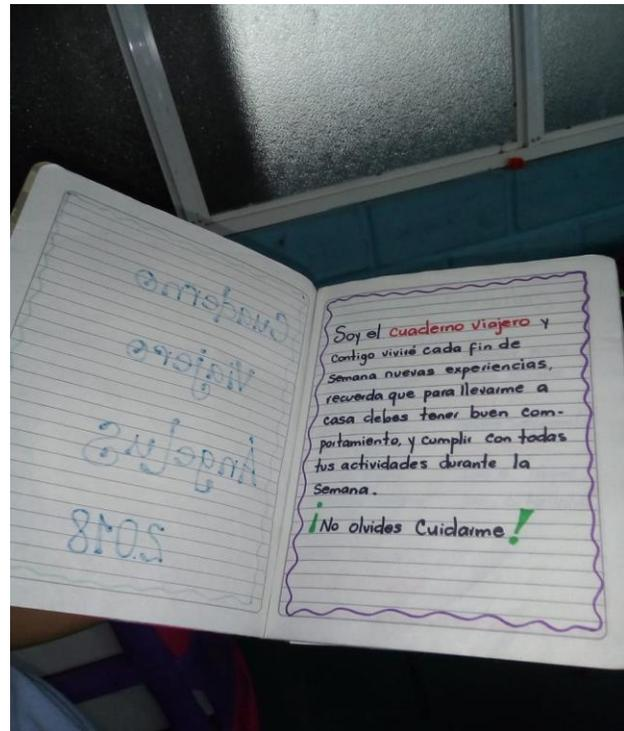 Cuaderno
Viajero
Ángelus
2.018
Soy el cuaderno viajero y
contigo viviré cada fin de
semana nuevas experiencias,
recuerda que para llevarme a
casa debes tener buen com-
portamiento, y cumplir con todas
tus actividades durante la
Semana.
¡No olvides Cuidarme!